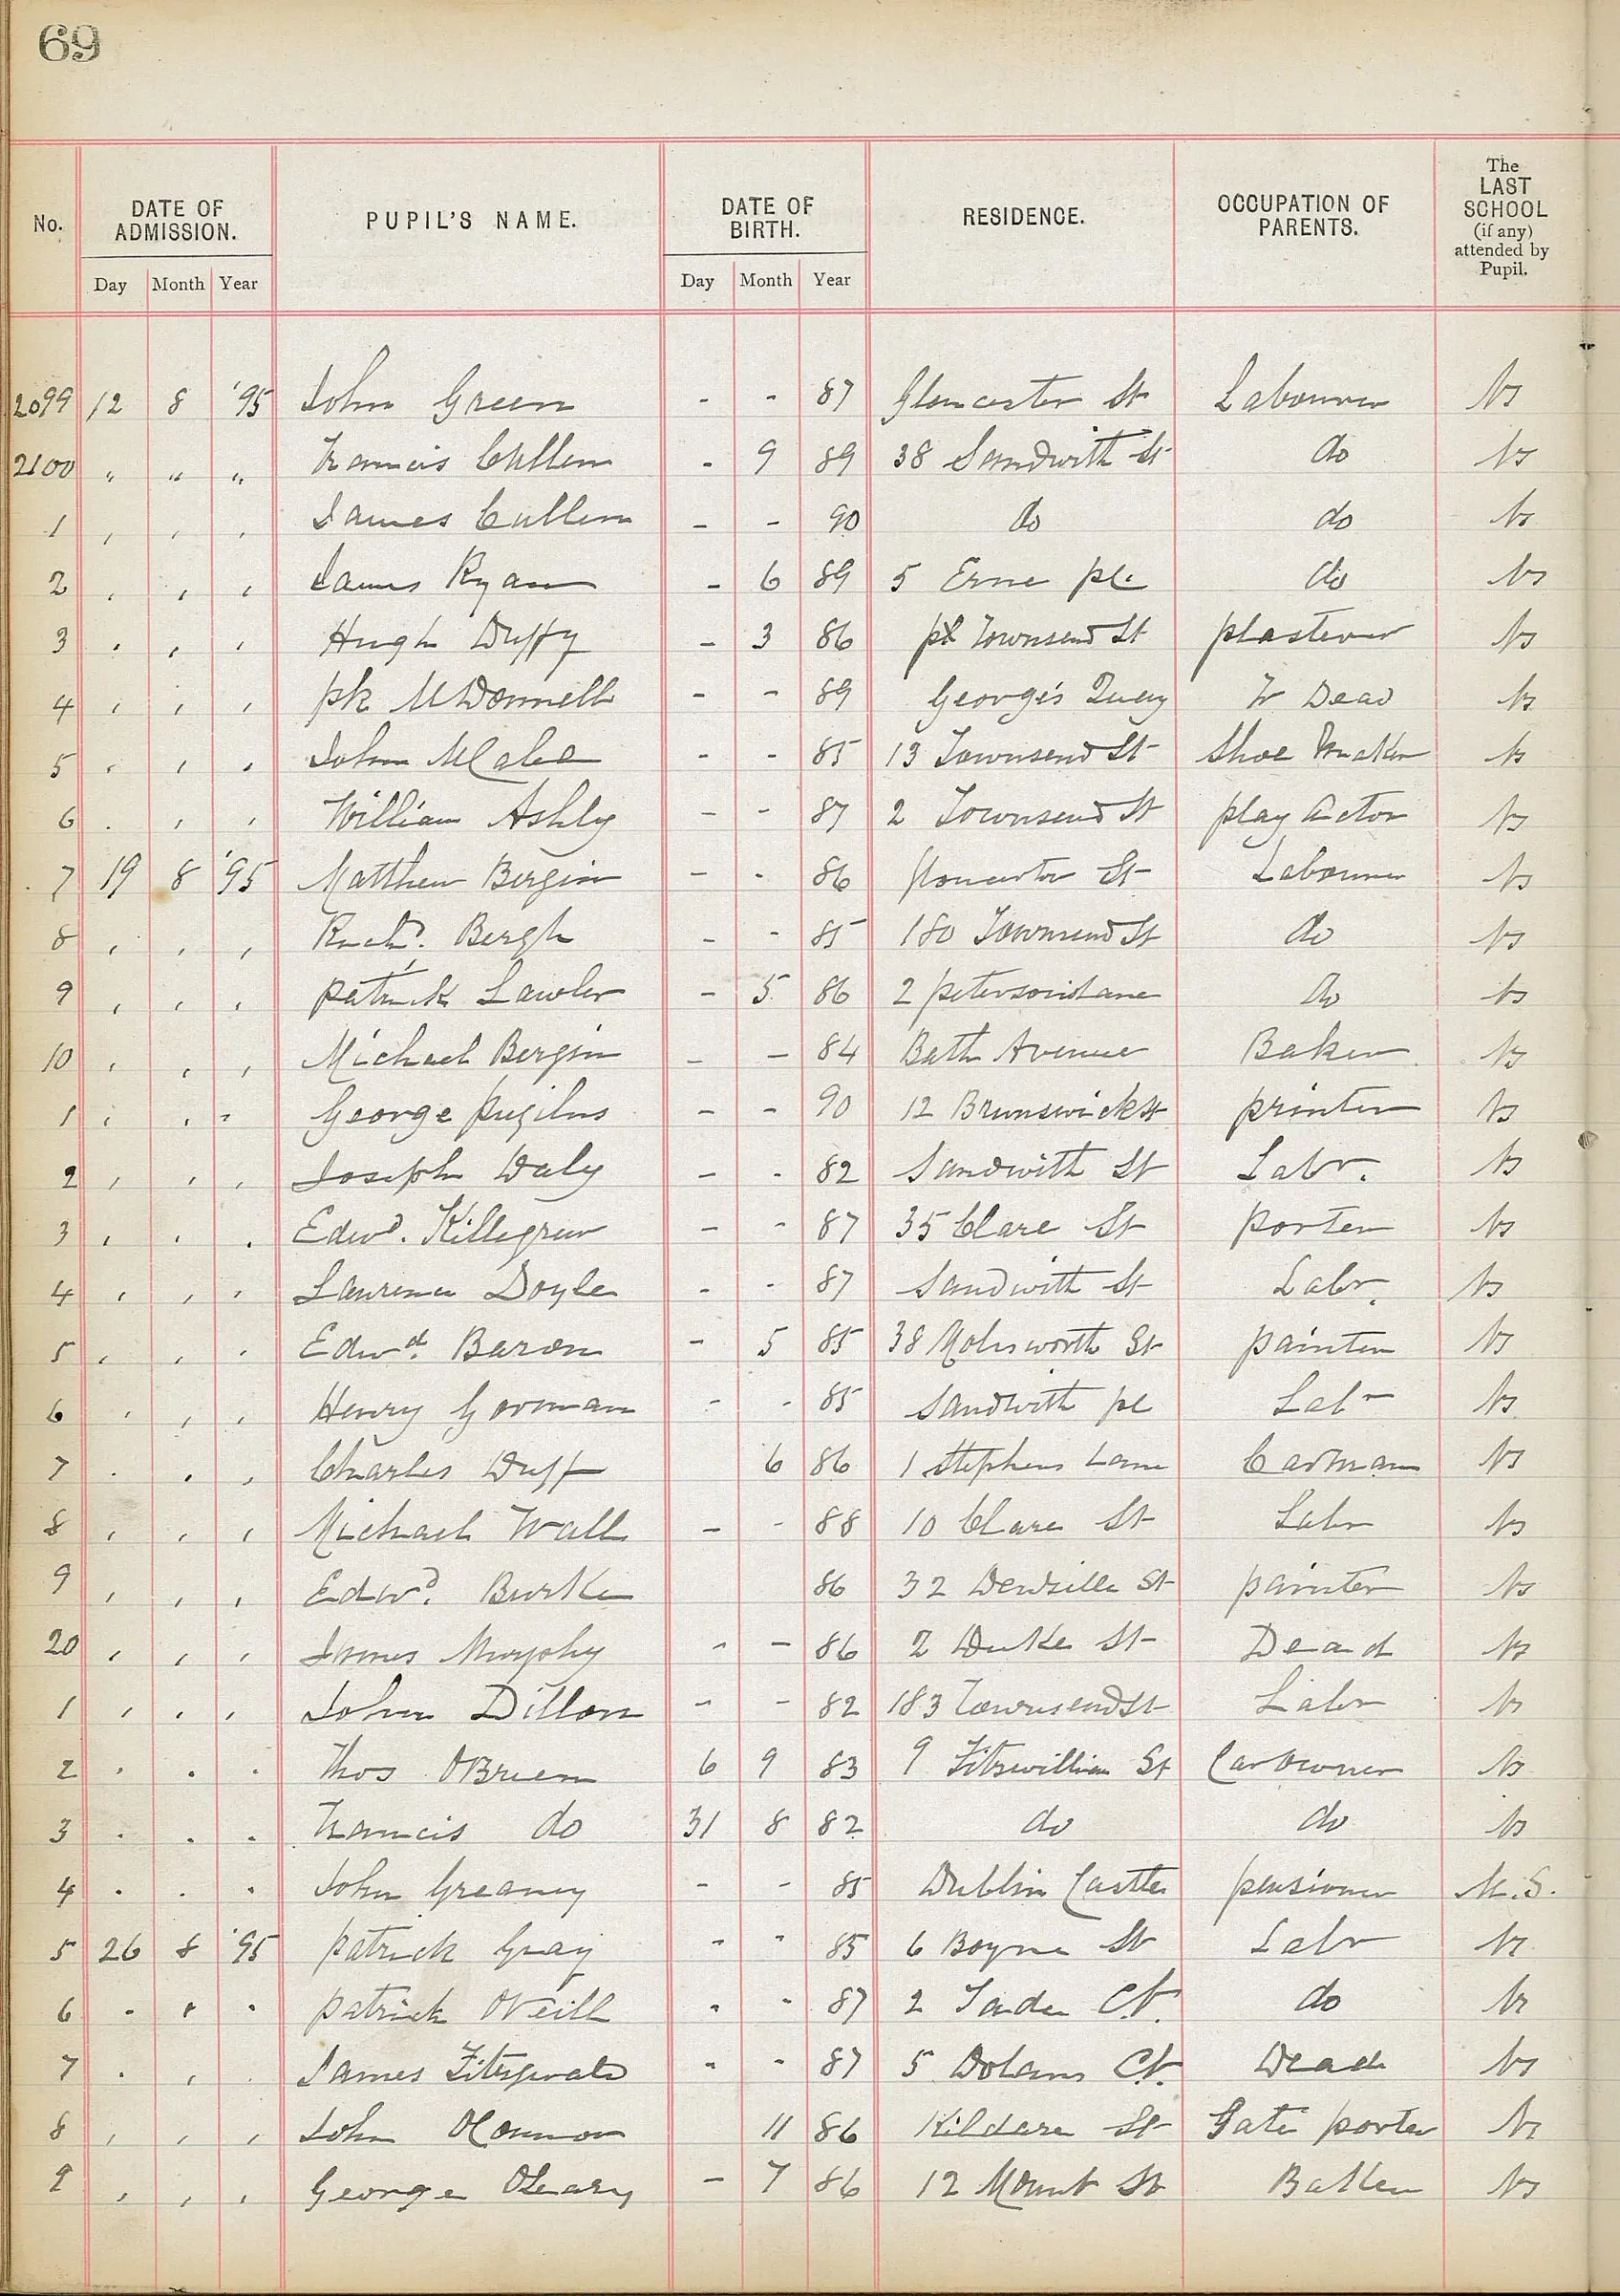 69
No. DATE OF ADMISSION. PUPIL'S NAME. DATE OF BIRTH. RESIDENCE. OCCUPATION OF PARENTS. The LAST SCHOOL (if any) attended by Pupil.
Day Month Year Day Month Year
2099 12 8 '95 John Green - - 87 Gloucester St Labourer Ns
2100 " " " Francis Cullen - 9 89 38 Sandwith St do Ns
1 , , , James Cullen - - 90 do do Ns
2 , , , James Ryan - 6 89 5 Erne pl. do Ns
3 , , , Hugh Duffy - 3 86 Townsend St plasterer Ns
4 , , , Pk McDonnell - - 89 George's Quay Dead Ns
5 , , , John McCabe - - 85 13 Townsend St Shoe Maker Ns
6 , , , William Ashly - - 87 2 Townsend St play actor Ns
7 19 8 '95 Matthew Bergin - - 86 Gloucester St Labourer Ns
8 , , , Richd. Bergh - - 85 180 Townsend St do Ns
9 , , , Patrick Lawler - 5 86 2 Petersons Lane do Ns
10 , , , Michael Bergin - - 84 Bath Avenue Baker Ns
1 , , , George - - 90 12 Brunswick St printer Ns
2 , , , Joseph Daly - - 82 Sandwith St Labr. Ns
3 , , , Edwd. Killegrew - - 87 35 Clare St porter Ns
4 , , , Laurence Doyle - - 87 Sandwith St Labr. Ns
5 , , , Edwd. Baron - 5 85 38 Molesworth St painter Ns
6 , , , Henry Gorman - - 85 Sandwith pl Labr Ns
7 , , , Charles Duff 6 86 1 Stephens Lane Carman Ns
8 , , , Michael Wall - - 88 10 Clare St Labr Ns
9 , , , Edwd. Burke 86 32 Denzille St painter Ns
20 , , , James Murphy - - 86 2 Duke St Dead Ns
1 , , , John Dillon - - 82 183 Townsend St Labr Ns
2 , , , Thos O'Brien 6 9 83 9 Fitzwilliam St Car owner Ns
3 , , , Francis do 31 8 82 do do Ns
4 , , , John Greaney - - 85 Dublin Castle pensioner M.S.
5 26 8 '95 Patrick Gray - - 85 6 Boyne St Labr Ns
6 , , , Patrick O'Neill - - 87 2 Ct. do Ns
7 , , , James Fitzgerald - - 87 5 Dolans Ct. Dead Ns
8 , , , John O'Connor 11 86 Kildare St Gate porter Ns
9 , , , George O'Leary - 7 86 12 Mount St Ns